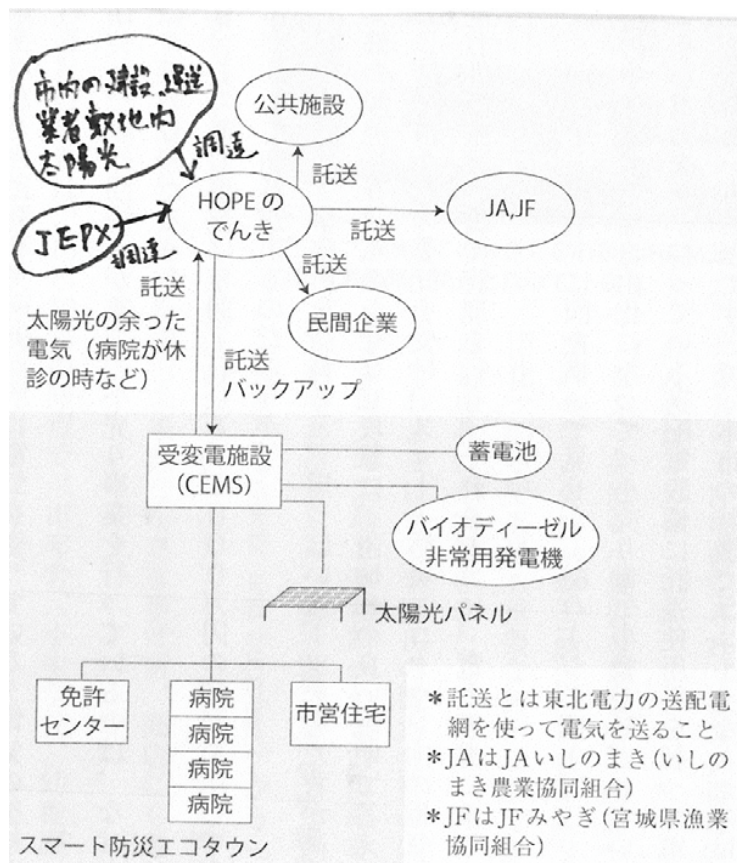 市内の建設、運送
業者敷地内
太陽光
調達
JEPX
調達
公共施設
託送
HOPEの
でんき
託送
JA,JF
託送
民間企業
託送
太陽光の余った
電気（病院が休
診の時など）
託送
バックアップ
受変電施設
(CEMS)
蓄電池
バイオディーゼル
非常用発電機
太陽光パネル
免許
センター
病院
病院
病院
病院
市営住宅
スマート防災エコタウン
＊託送とは東北電力の送配電
網を使って電気を送ること
＊JAはJAいしのまき(いしの
まき農業協同組合)
＊JFはJFみやぎ(宮城県漁業
協同組合)